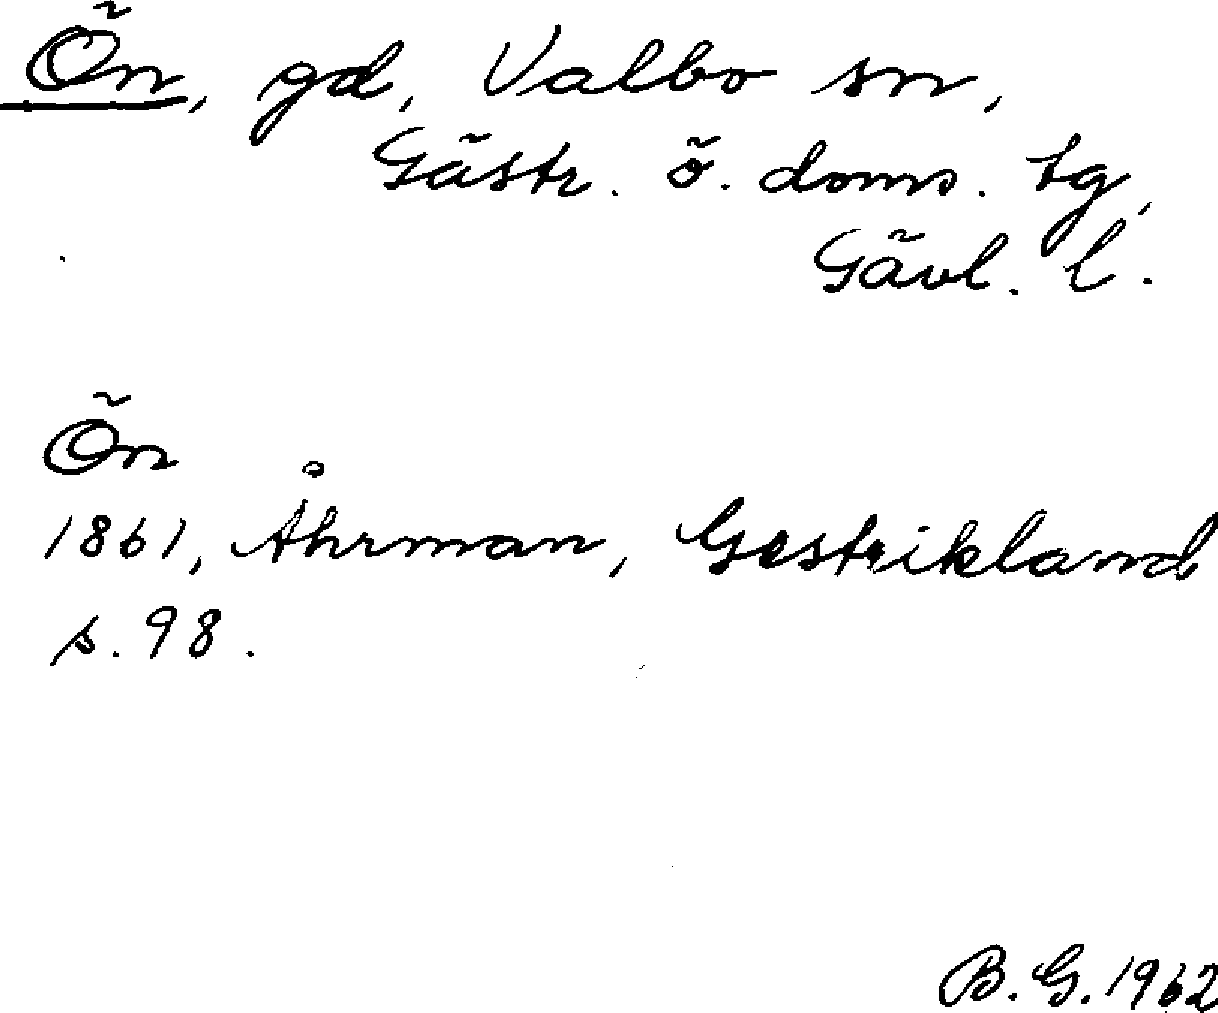 Ön, gd, Valbo sn,
Gästr. ö. doms. tg,
Gävl. l.
Ön
1861, Åhrman, Gestrikland
s. 98.
B. G. 1962